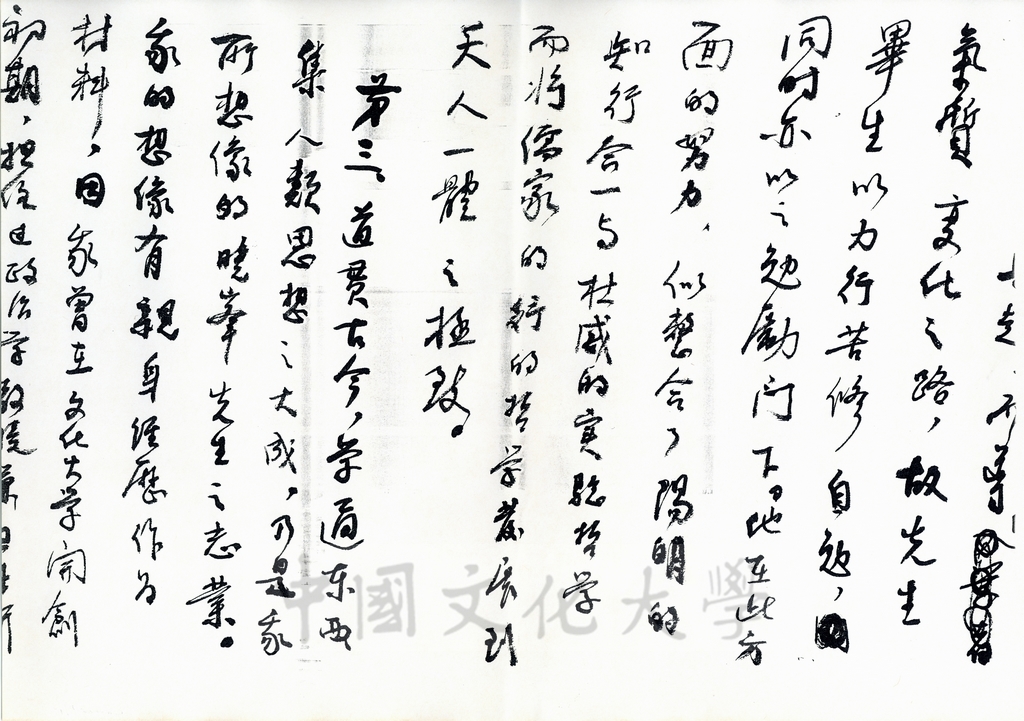 氣質变化之路，故先生
畢生以力行苦修自勉，
同时亦以之勉勵门下。他在此方
面的努力，似整合了陽明的
知行合一与杜威的实驗哲学
而将儒家的行的哲学發展到
天人一體之極致。
第三道貫古今，学通东西
集人類思想之大成，乃是我
所想像的曉峯先生之志業。
我的想像有親身经歷作为
材料，因我曾在文化大学開創
初期，担任过政治学
中國文化大學